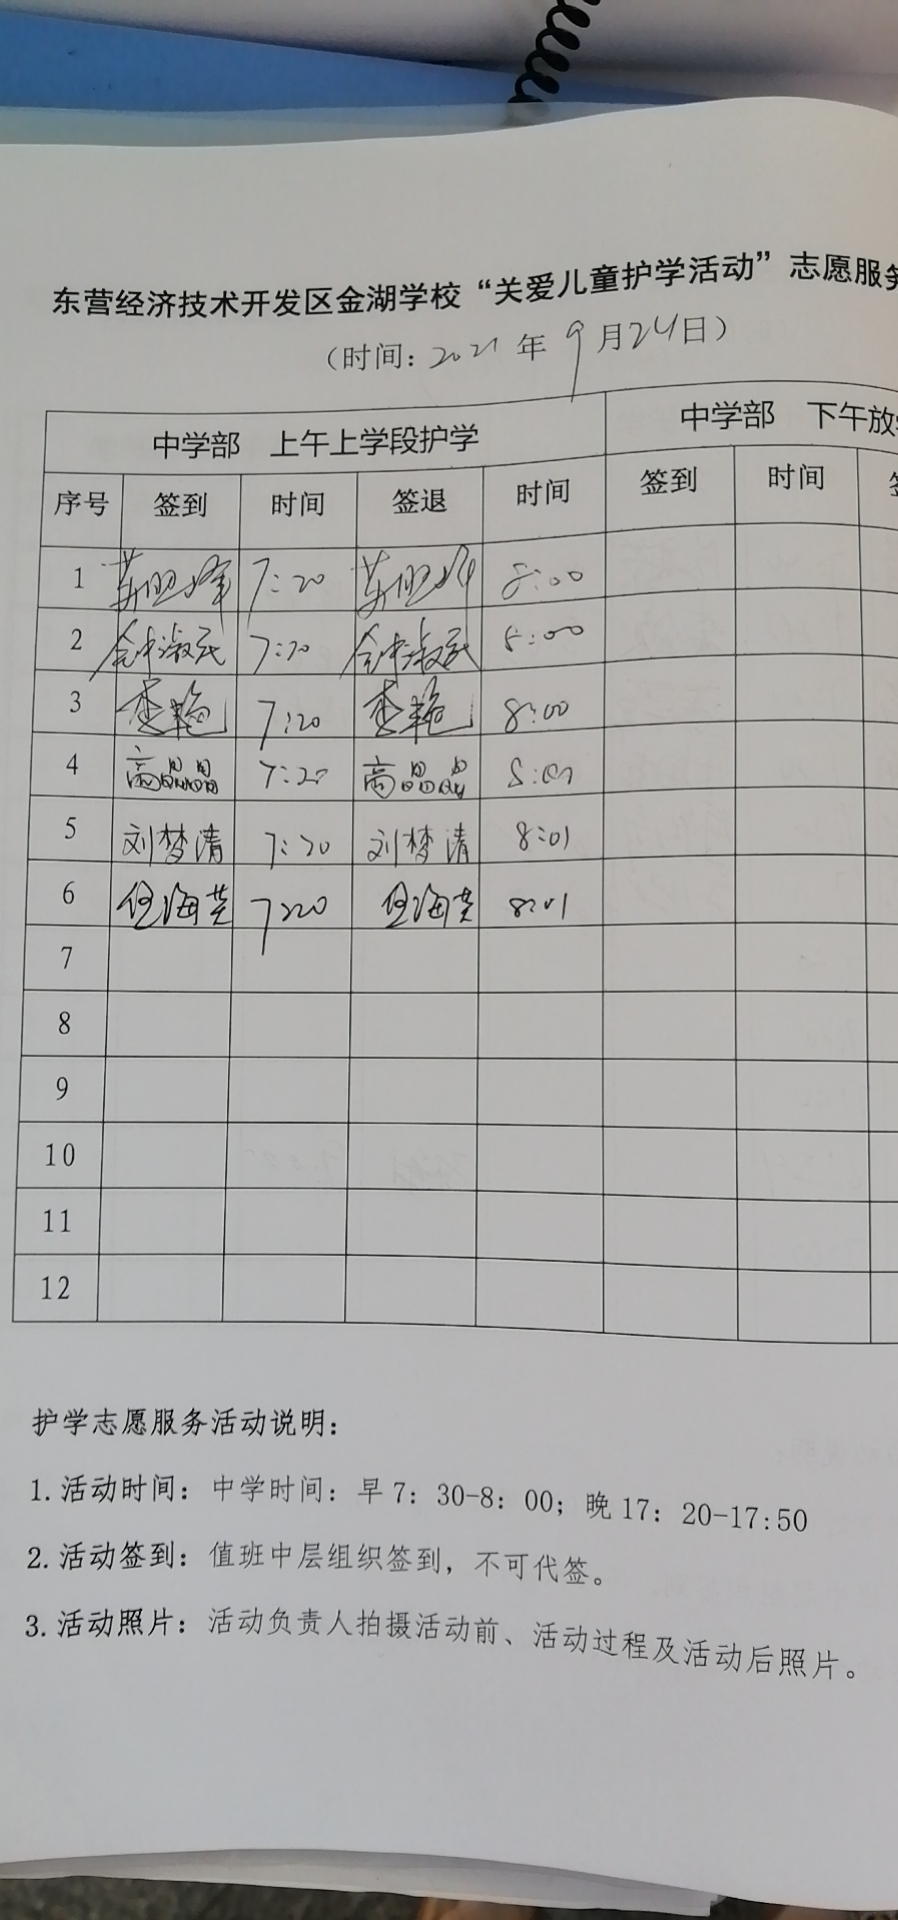 东营经济技术开发区金湖学校“关爱儿童护学活动”志愿服务
（时间：2021年9月24日）
中学部 上午上学段护学 中学部 下午放学
序号 签到 时间 签退 时间 签到 时间
1 7:20 8:00
2 7:20 8:00
3 李艳 7:20 李艳 8:00
4 高晶晶 7:20 高晶晶 8:01
5 刘梦清 7:20 刘梦清 8:01
6 7:20 8:01
7
8
9
10
11
12
护学志愿服务活动说明：
1.活动时间：中学时间：早7：30-8：00；晚17：20-17:50
2.活动签到：值班中层组织签到，不可代签。
3.活动照片：活动负责人拍摄活动前、活动过程及活动后照片。